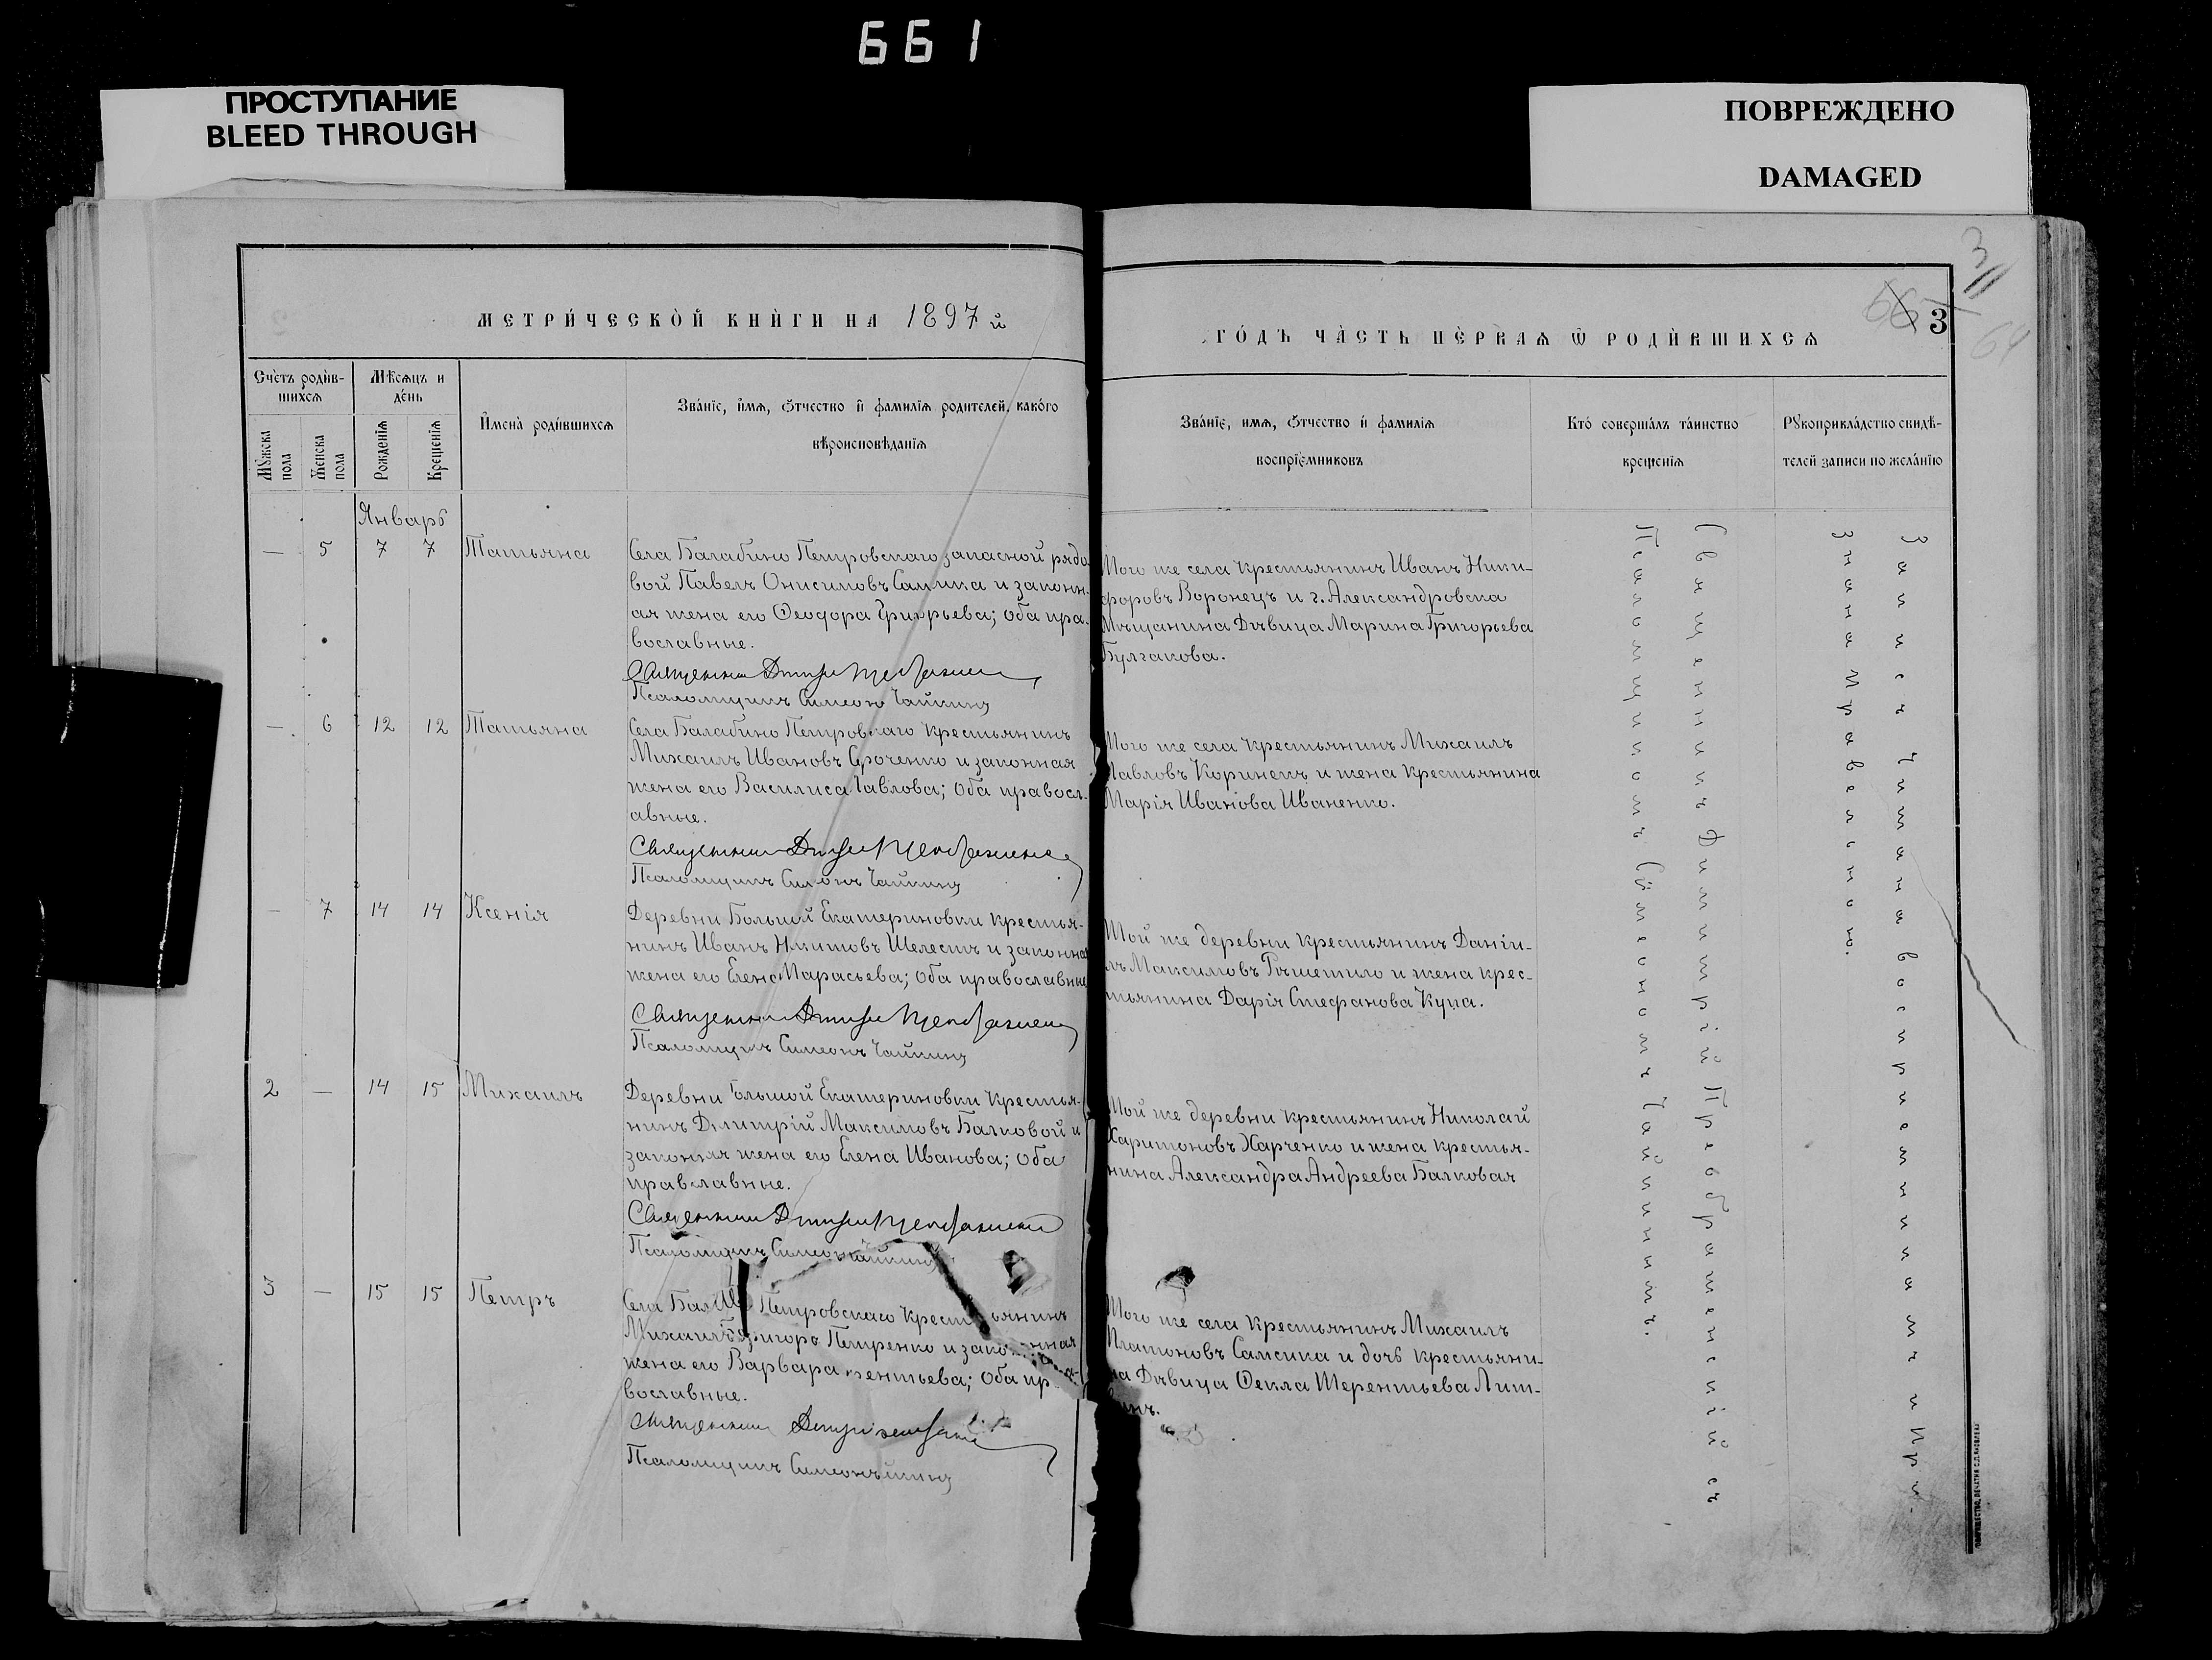 661
ПРОСТУПАНИЕ
BLEED THROUGH
ПОВРЕЖДЕНО
DAMAGED
МЕТРИ́ЧЕСКОЙ КНИ́ГИ НА 1897 й
ГО́ДЪ ЧА́СТЬ ПЕ́РВАѦ Ѿ РОДИ́ВШИХСѦ
3
3
64
Сче́тъ роди́в-
шихсѧ
Мꙋ́жеска пола
Же́нска пола
Мѣ́сѧцъ и
де́нь
Рожденїѧ
Крещенїѧ
И҆мена̀ роди́вшихсѧ
Зва́нїе, и҆́мѧ, ѻ҆́тчество и҆ фамилїѧ родителей, како́го
вѣроисповѣ́данїѧ
Зва́нїе, имѧ, ѻ҆́тчество и҆ фамилїѧ
воспрїе́мниковъ
Кто̀ соверша́лъ та́инство
креще́нїѧ
Рꙋкоприкла́дство свидѣ́-
телей записи по жела́нїю
Январь
— 5 7 7 Татьяна
Села Балабино Петровскаго запасной рядо-
вой Павелъ Онисимовъ Самсика и законн-
ая жена его Ѳеодора Григорьева; оба пра-
вославные.
Священникъ Димитрій Преображенскій
Псаломщикъ Симеонъ Чайкинъ
Того же села крестьянинъ Иванъ Ники-
форовъ Воронецъ и г. Александровска
Мѣщанина Дѣвица Марина Григорьева
Булгакова.
— 6 12 12 Татьяна
Села Балабино Петровскаго крестьянинъ
Михаилъ Ивановъ Ероченко и законная
жена его Василиса Павлова; оба правосл-
авные.
Священникъ Димитрій Преображенскій
Псаломщикъ Симеонъ Чайкинъ
Того же села крестьянинъ Михаилъ
Павловъ Коринецъ и жена крестьянина
Марія Иванова Иваненко.
— 7 14 14 Ксенія
Деревни Большой Екатериновки крестья-
нинъ Иванъ Никитовъ Шелестъ и законная
жена его Елена Тарасьева; оба православные
Священникъ Димитрій Преображенскій
Псаломщикъ Симеонъ Чайкинъ
Той же деревни крестьянинъ Даніи-
лъ Максимовъ Рѣшетило и жена крес-
тьянина Дарія Стефанова Куца.
2 — 14 15 Михаилъ
Деревни Большой Екатериновки крестья-
нинъ Димитрій Максимовъ Балковой и
законная жена его Елена Иванова; оба
православные.
Священникъ Димитрій Преображенскій
Псаломщикъ Симеонъ Чайкинъ
Той же деревни крестьянинъ Николай
Харитоновъ Харченко и жена крестья-
нина Александра Андреева Балковая
3 — 15 15 Петръ
Села Петровскаго крестьянинъ
Михаилъ Петренко и законная
жена его Варвара ; оба пра-
вославные.
Священникъ Димитрій
Псаломщикъ Симеонъ
Того же села крестьянинъ Михаилъ
Платоновъ Самсика и дочь крестьяни-
на Дѣвица Ѳекла Терентьева Лит-
винъ.
Священникъ Димитрій Преображенскій съ
Псаломщикомъ Симеономъ Чайкинымъ.
Запись читана воспріемникамъ и при-
знана правельною.